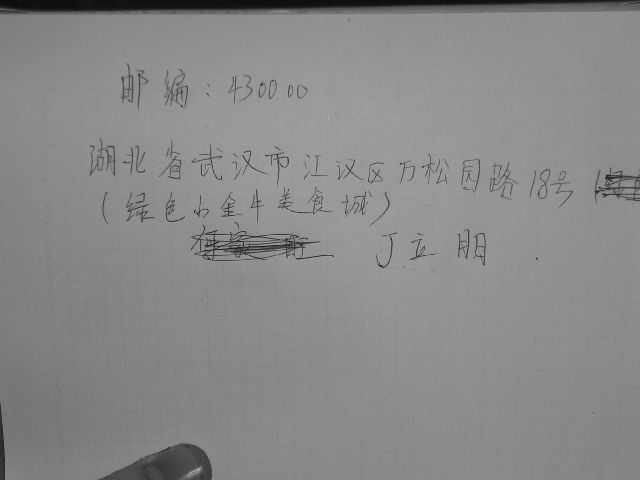 邮编：430000
湖北省武汉市江汉区万松园路18号（
（绿色小金牛美食城）
丁立朋